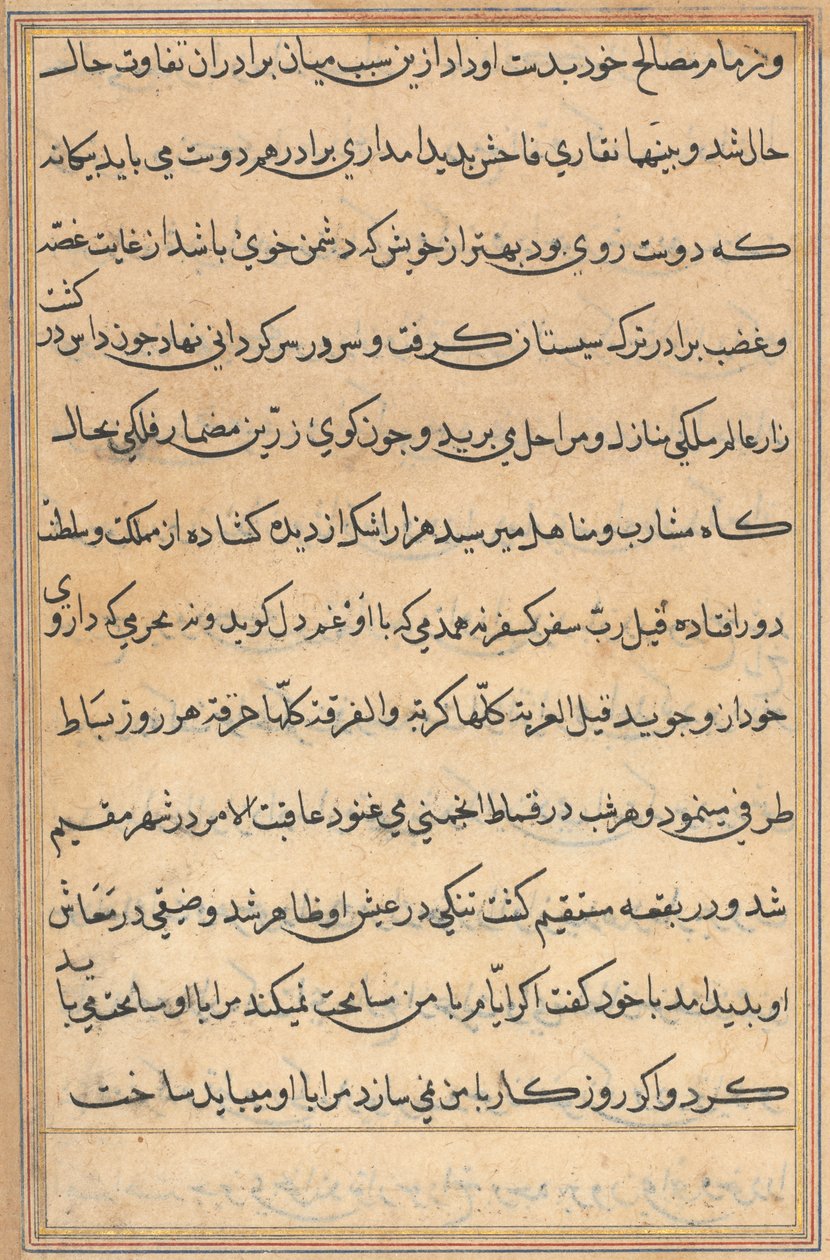 و زمام مصالح خود بدست او داد ازین سبب میان برادران تفاوت حال
حال شد و بینهما نقاری فاحش بدید امد اری برادر هم دوست می باید بیکانه
که دوست روی بود بهتر از خویش که دشمن خوئ باشد از غایت غصّه
و غضب برادر ترک سیستان کرفت و سر در سر کردانی نهاد جون داس در کشت
زار عالم ملکی منازل و مراحل می برید و جون کوئ زرّین مضمار فلکی بحال
کاه مشارب و مناهل میرسید هزار اشک از دیده کشاده از مملکت و سلطنت
دور افتاده قیل ربّ سفر کسفر نه همدمی که با او غم دل کوید و نه محرمی که داروی
خود از و جوید قیل الغربة کلّها کربة والفرقة کلّها حرقة هر روز بساط
طرفی میپیمود و هر شب در قماط انجمنی می غنود عاقبت الامر در شهر مقیم
شد و در بقعه مستقیم کشت تنکی در عیش او ظاهر شد و ضیقی در مَعَاش
او بدید امد با خود کفت اکر ایّام با من مسامحت نمیکند مرا با او مسامحت می باید
کرد و اکر روزکار با من نمی سازد مرا با او میباید ساخت